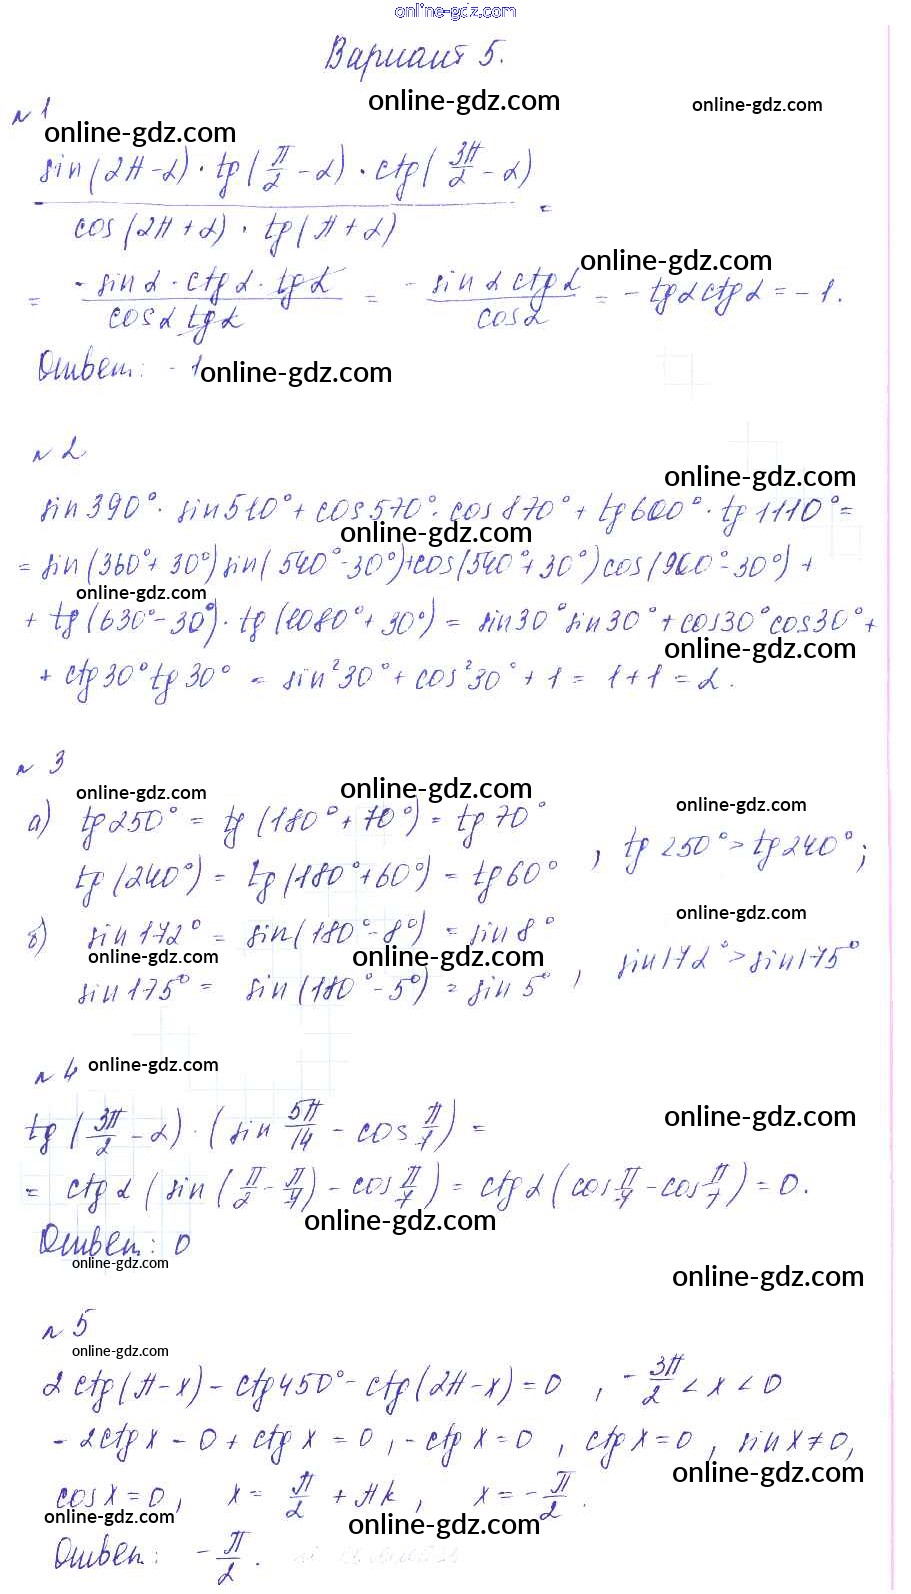 online-gdz.com
Вариант 5.
online-gdz.com
online-gdz.com
№ 1
online-gdz.com
sin(2π-α)·tg(π/2-α)·ctg(3π/2-α)
cos(2π+α)·tg(π+α) =
online-gdz.com
= -sinα·ctgα·tgα / cosα tgα = - sinα ctgα / cosα = -tgαctgα = -1.
Ответ: -1
online-gdz.com
№ 2
online-gdz.com
sin390°·sin510°+cos570°·cos870°+tg600°·tg1110°=
=sin(360°+30°)sin(540°-30°)+cos(540°+30°)cos(900°-30°)+
online-gdz.com
+tg(630°-30°)·tg(1080°+30°)=sin30°sin30°+cos30°cos30°+
online-gdz.com
+ctg30°tg30°=sin²30°+cos²30°+1=1+1=2.
№ 3
online-gdz.com
online-gdz.com
online-gdz.com
а) tg250°=tg(180°+70°)=tg70°
tg(240°)=tg(180°+60°)=tg60°, tg250°>tg240°;
online-gdz.com
б) sin172°=sin(180°-8°)=sin8°
online-gdz.com
online-gdz.com
sin175°=sin(180°-5°)=sin5°, sin172°>sin175°
№ 4
online-gdz.com
online-gdz.com
tg(3π/2-α)·(sin 5π/14 - cos π/7)=
=ctgα(sin(π/2-π/7)-cos π/7)=ctgα(cos π/7-cos π/7)=0.
online-gdz.com
Ответ: 0
online-gdz.com
online-gdz.com
№ 5
online-gdz.com
2ctg(π-x)-ctg450°-ctg(2π-x)=0, -3π/2<x<0
-2ctgx-0+ctgx=0, -ctgx=0, ctgx=0, sinx≠0,
online-gdz.com
cosx=0, x=π/2+πk, x=-π/2.
online-gdz.com
online-gdz.com
Ответ: -π/2.